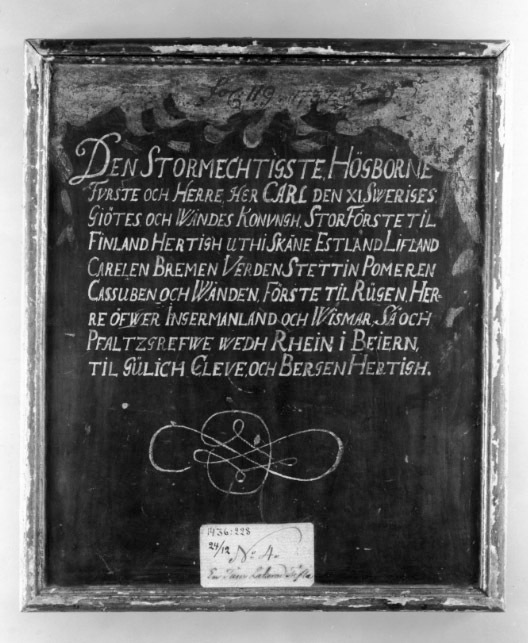 N 9
DEN STORMECHTIGSTE, HÖGBORNE
FURSTE OCH HERRE, HER CARL DEN XI SWERIGES
GIÖTES OCH WÄNDES KONUNGH, STORFÖRSTE TIL
FINLAND HERTIGH UTHI SKÅNE ESTLAND LIFLAND
CARELEN BREMEN VERDEN STETTIN POMEREN
CASSUBEN OCH WÄNDEN, FÖRSTE TIL RÜGEN, HER-
RE ÖFWER INGERMANLAND OCH WISMAR, SÅ OCH
PFALTZGREFWE WEDH RHEIN I BEIERN,
TIL GÜLICH CLEVE OCH BERGEN HERTIGH.
1936:228
24/12 No 4.